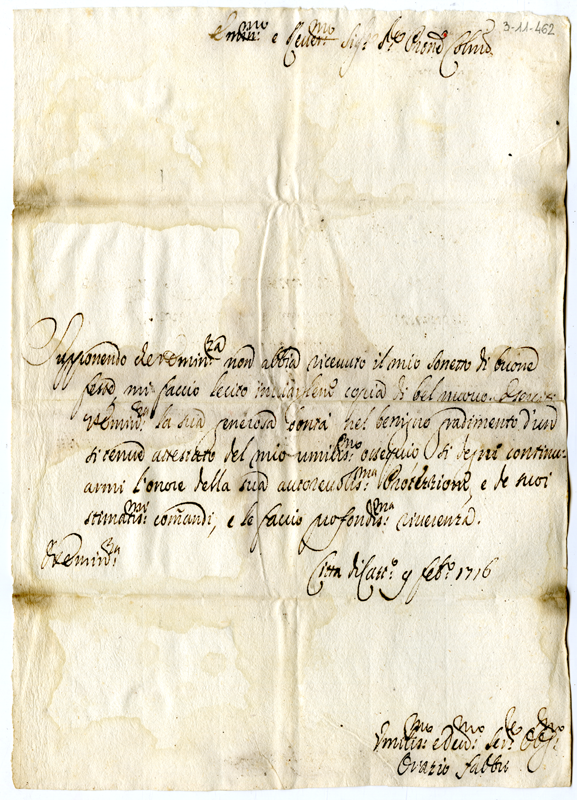 3-11-462
Emin:mo e Rever:mo Sig:r Sig:r e Pron:e Col:mo
Supponendo che V. Emin:za non abbia ricevuto il mio sonetto di buone
feste mi faccio lecito inviargliene copia di bel nuovo.
V. Emin:za la sua generosa bontà nel benigno gradimento d'un
sì tenue attestato del mio umilis:mo ossequio si degni continu-
armi l'onore della sua autorevolis:ma Protettione, e de suoi
stimatis:mi comandi, e le faccio profondis:ma riverenza.
V. Emin:za
Citta di Cast:o 9 feb:o 1716
Umilis:mo e Dev:mo Ser:re Obl:mo
Oratio Fabbri